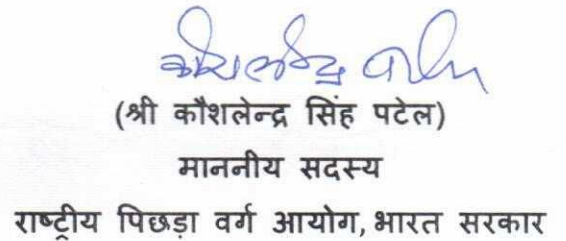 कौशलेन्द्र पटेल
(श्री कौशलेन्द्र सिंह पटेल)
माननीय सदस्य
राष्ट्रीय पिछड़ा वर्ग आयोग, भारत सरकार